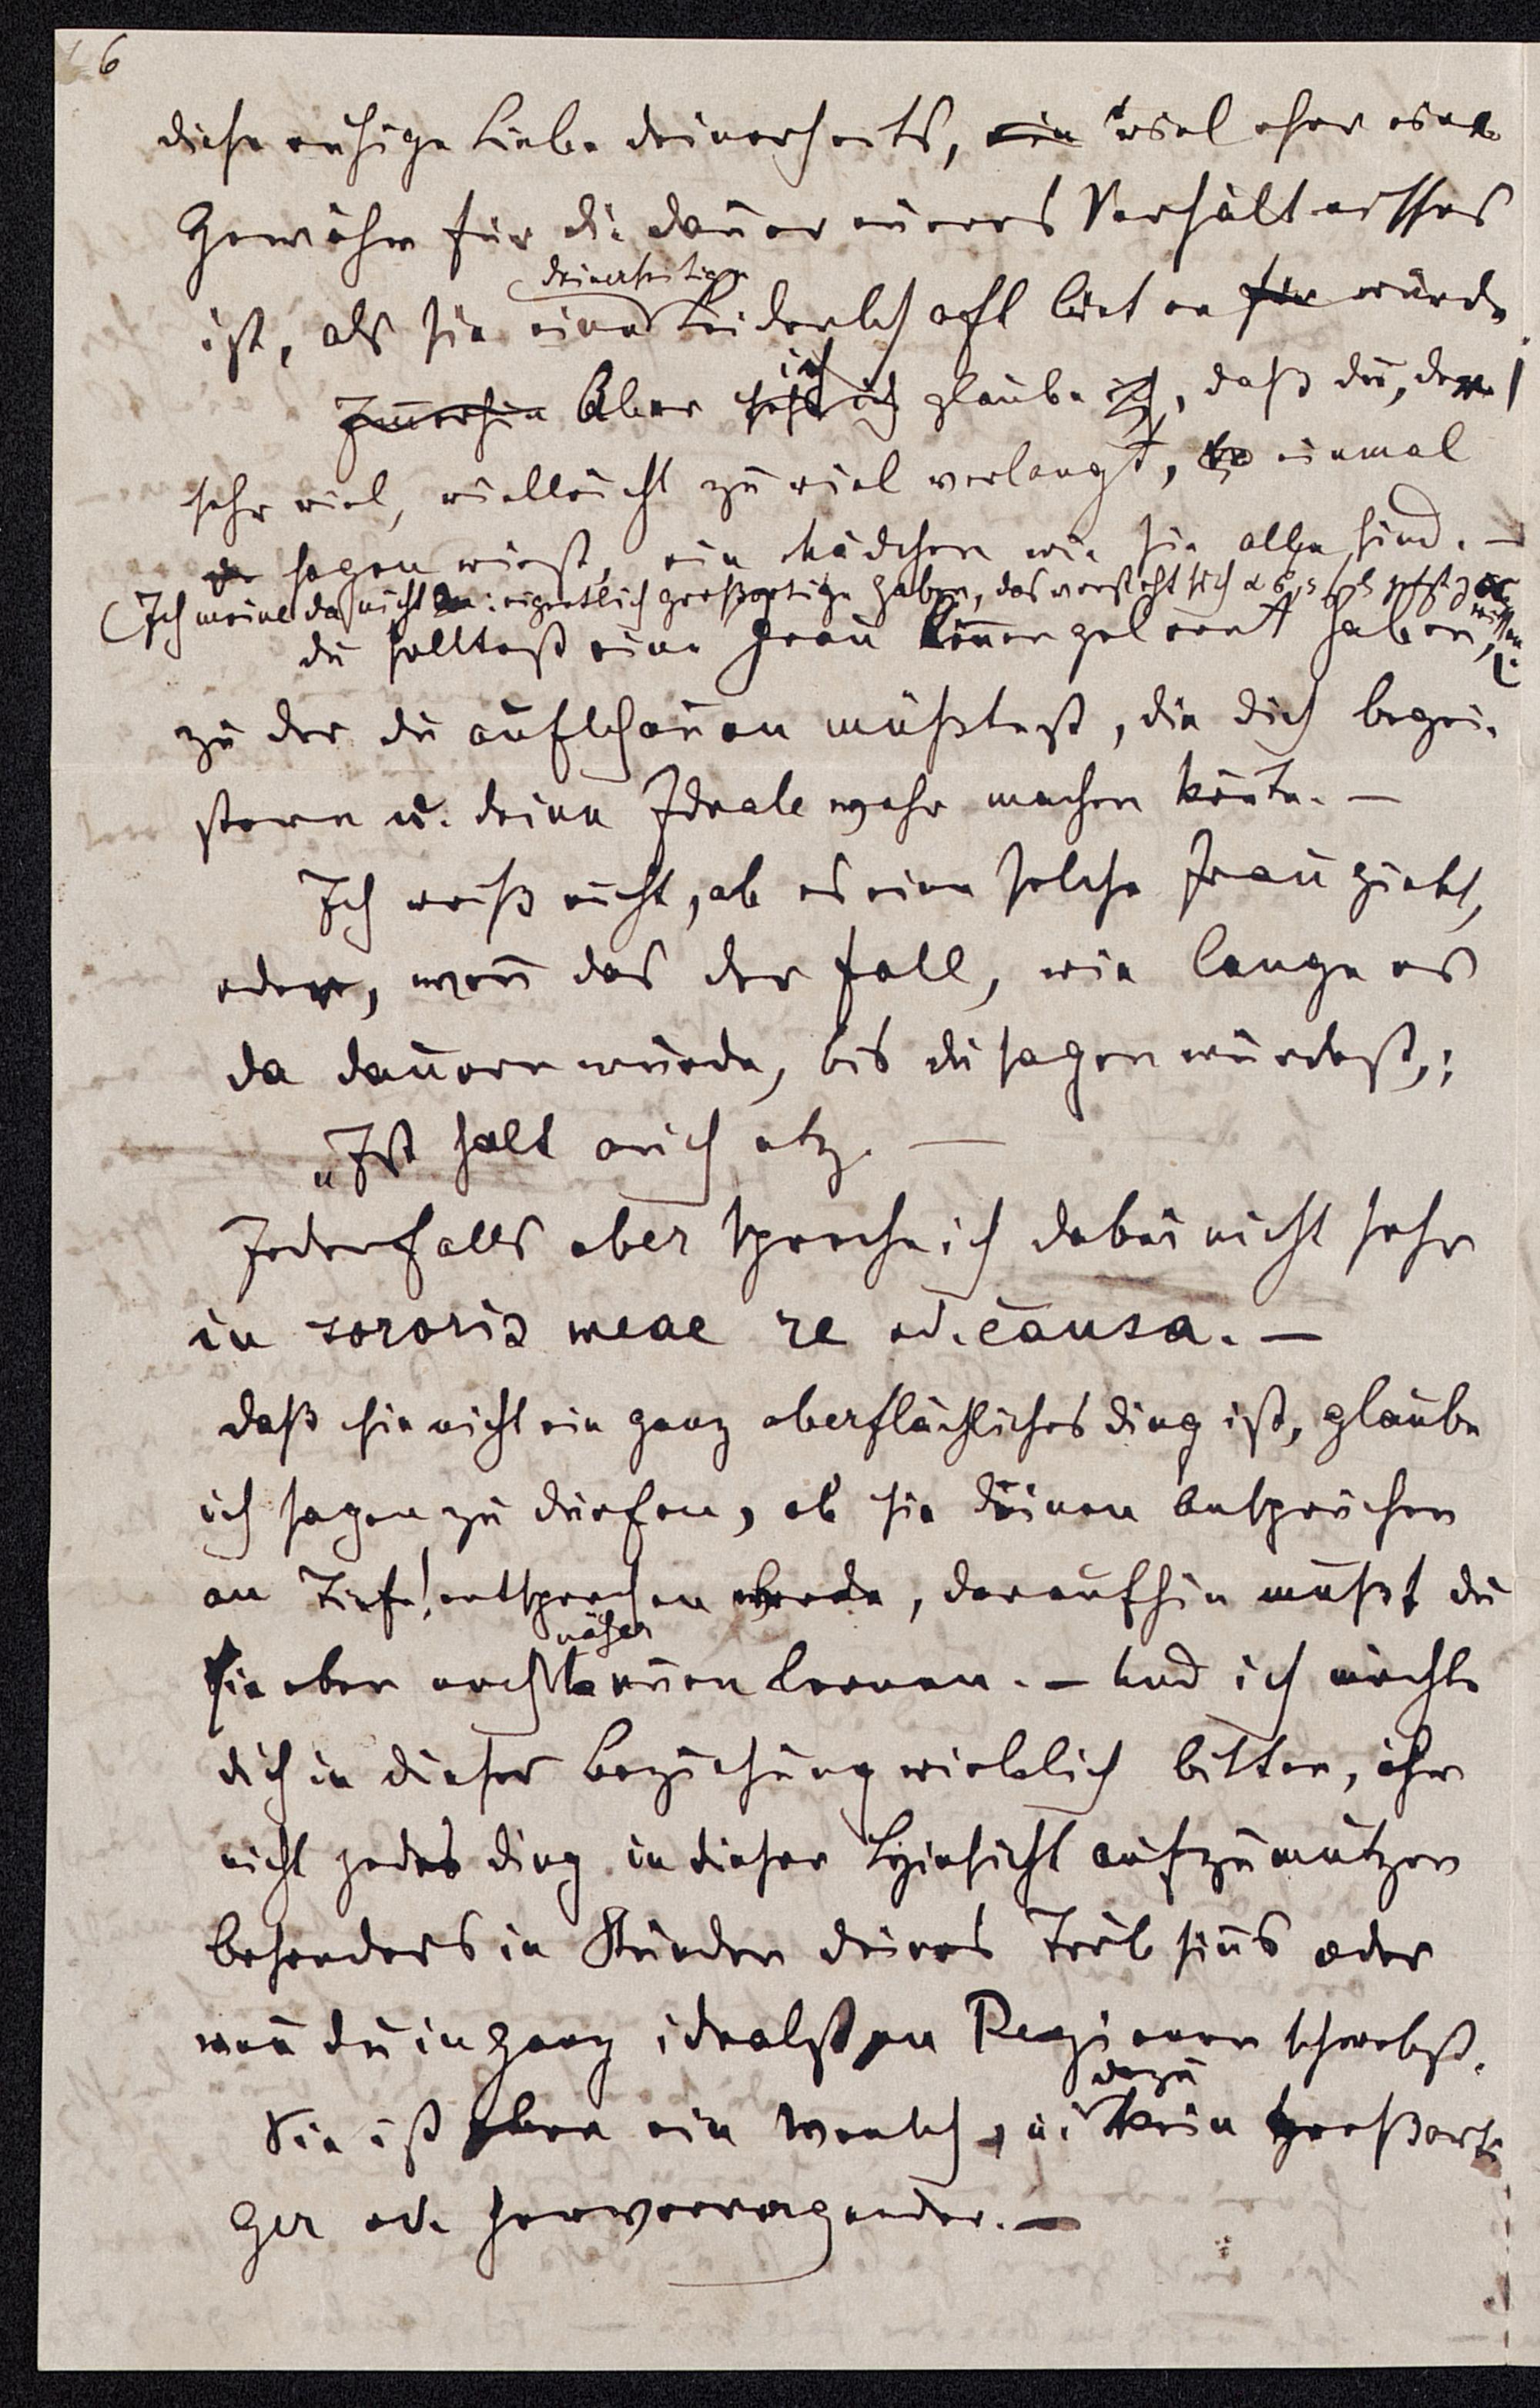 6
diese ruhige Liebe deinerseits, ein viel eher eine
Gewähr für die Dauer eueres Verhältnisses
deinerseitige
ist, als sie eine Leidenschaft bieten für würde.
ich
Immerhin Aber ich glaube ich, daß du, der
sehr viel, vielleicht zu viel verlangt, einmal
sagen wirst, ein Mädchen wie sie alle sind. —
(Ich meine da nicht : eigentlich großartige Gaben, das versteht sich
müssen,
du solltest eine Frau kennen gelernt haben,
zu der du aufschauen müßtest, die dich begei-
stern u. deine Ideale wahr machen könte. —
Ich weiß nicht, ob es eine solche Frau giebt,
oder, wen̄ das der Fall, wie lange es
da dauern würde, bis du sagen würdest,:
„Ist halt auch etz. —
Jedenfalls aber spreche ich dabei nicht sehr
in sororis meae re od. causa. —
daß sie nicht ein ganz oberflächliches Ding ist, glaube
ich sagen zu dürfen, ob sie deinen Ansprüchen
an Tiefe! entsprechen werde, daraufhin mußt du
näher
sie aber noch kennen lernen. — Und ich möchte
dich in dieser Beziehung wirklich bitten, ihr
nicht jedes Ding in dieser Hinsicht aufzumutzen
besonders in Stunden deines Trübsin̄s oder
wen̄ du in ganz idealsten Regionen schwebst.
dazu
Sie ist eben ein Mensch, u. kein großarti
ger od. hervorragender. —